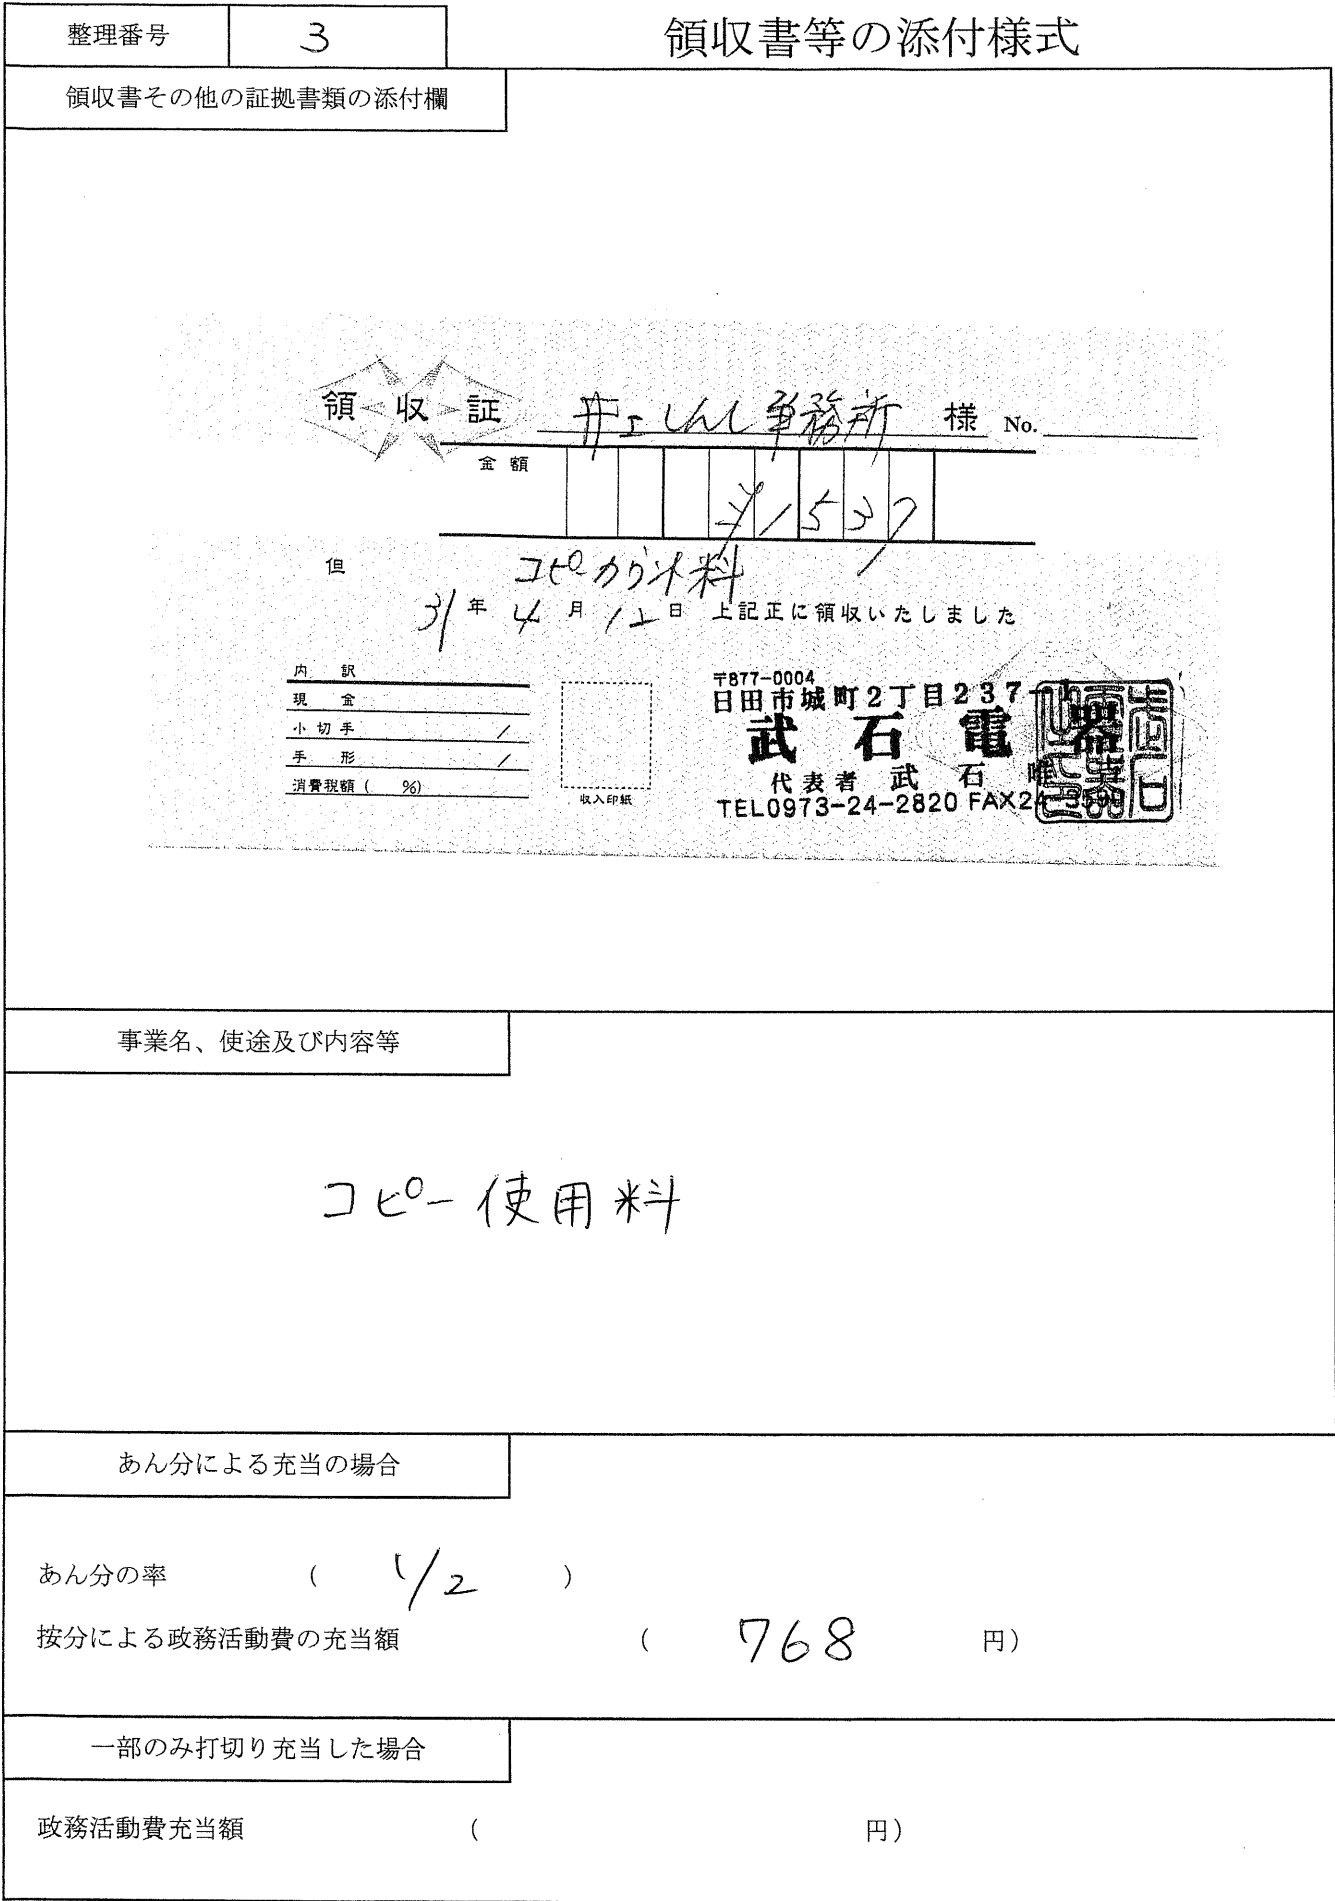 整理番号 3 領収書等の添付様式
領収書その他の証拠書類の添付欄
領収証 井上しんし事務所 様 No.
金額 ¥1537
但 コピーカウント料
31年4月12日 上記正に領収いたしました
内訳
現金
小切手 /
手形 /
消費税額( %)
収入印紙
〒877-0004
日田市城町2丁目237-1
武石電器
代表者 武石 唯
TEL0973-24-2820 FAX24
事業名、使途及び内容等
コピー使用料
あん分による充当の場合
あん分の率 ( 1/2 )
按分による政務活動費の充当額 ( 768 円)
一部のみ打切り充当した場合
政務活動費充当額 ( 円)